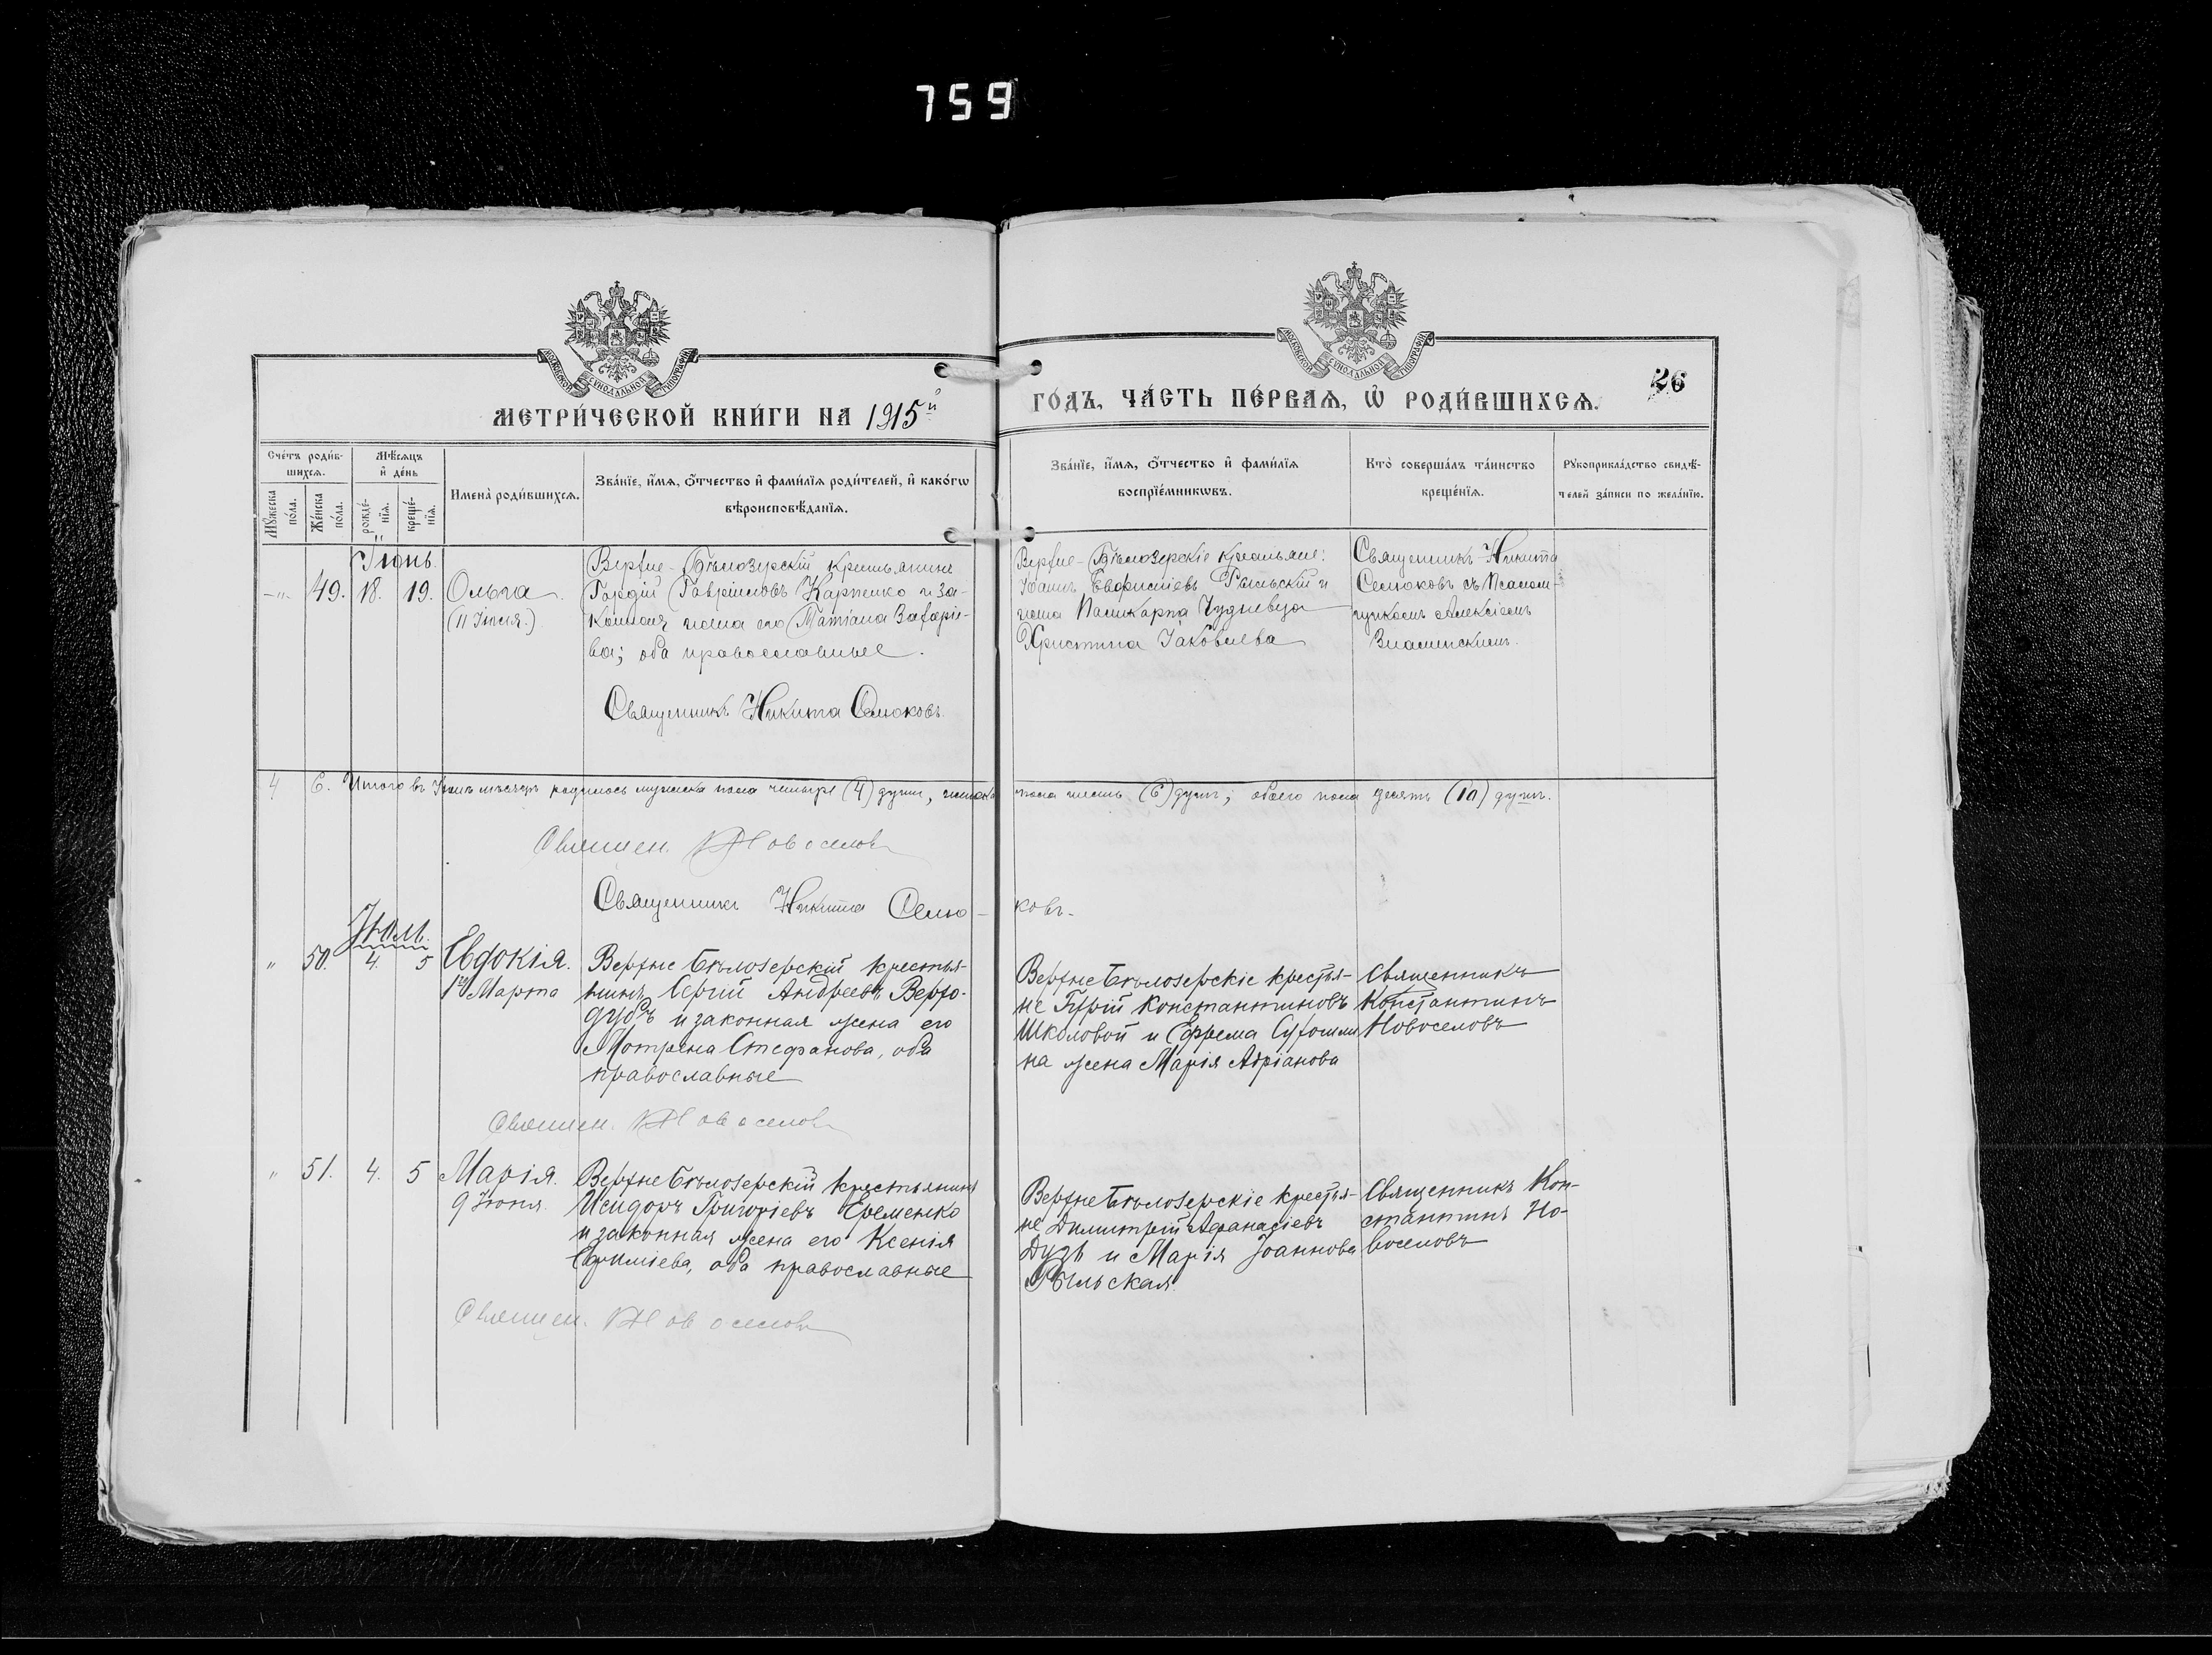 759
МОСКОВСКОЙ СѴНОДАЛЬНОЙ ТИПОГРАФІИ
МОСКОВСКОЙ СѴНОДАЛЬНОЙ ТИПОГРАФІИ
26
МЕТРИ́ЧЕСКОЙ КНИ́ГИ НА 1915й
ГО́ДЪ, ЧА́СТЬ ПЕ́РВАѦ, Ѡ҆ РОДИ́ВШИХСѦ.
Сче́тъ роди́в-
шихсѧ.
Мѣ́сѧцъ
и҆ де́нь
Мꙋ́жеска
по́ла.
Же́нска
по́ла.
рожде́-
нїѧ.
креще́-
нїѧ.
Имена̀ роди́вшихсѧ.
Зва́нїе, и҆́мѧ, ѻ҆́тчество и҆ фами́лїѧ роди́телей, и҆ како́гѡ
вѣроисповѣ́данїѧ.
Зва́нїе, и҆́мѧ, ѻ҆́тчество и҆ фами́лїѧ
воспрїе́мникѡвъ.
Кто̀ соверша́лъ та́инство
креще́нїѧ.
Рꙋкоприкла́дство свидѣ́-
телей за́писи по жела́нїю.
Іюнь
-"- 49. 18. 19. Ольга
(11 Іюля.)
Верхне-Бѣлозерскій крестьянинъ
Гордій Гавріиловъ Карпенко и за-
конная жена его Татіана Захарiе-
ва; оба православные.
Священникъ Никита Семоковъ.
Верхне-Бѣлозерскіе крестьяне:
Іоаннъ Евфиміевъ Рыльскій и
жена Поликарпа Чуднивца
Христина Іаковлева
Священникъ Никита
Семоковъ съ псалом-
щикомъ Алексіемъ
Знаменскимъ.
4 6. Итого въ Іюнѣ мѣсяцѣ родилось мужеска пола четыре (4) души, женска пола шесть (6) душъ; обоего пола десять (10) душъ.
Священ. К Новоселовъ
Священникъ Никита Семо-
ковъ.
Іюль.
" 50. 4. 5 Евдокія.
1го Марта
Верхне Бѣлозерскій крестья-
нинъ Сергій Андреевъ Верхо-
дубъ и законная жена его
Мотрена Стефанова, оба
православные
Верхне Бѣлозерскіе крестья-
не Гурій Константиновъ
Школовой и Ефрема Сухомли
на жена Марія Адріанова
Священникъ
Константинъ
Новоселовъ
Священ. К Новоселовъ
" 51. 4. 5 Марія.
9 Іюня.
Верхне Бѣлозерскій крестьянинъ
Исидоръ Григоріевъ Еременко
и законная жена его Ксенія
Ефиміева, оба православные
Верхне Бѣлозерскіе крестья-
не Димитрій Афанасіевъ
Дузь и Марія Іоаннова
Рыльская
Священникъ Кон-
стантинъ Но-
воселовъ
Священ. К Новоселовъ